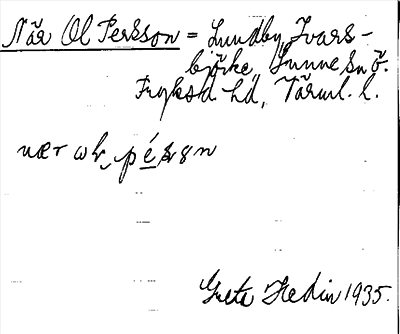 När Ol Persson = Lundby, Ivars-
björke, Sunne sn ö.
Fryksd. hd, Värml. l.
nær wḷ, péssn
Greta Hedin 1935.